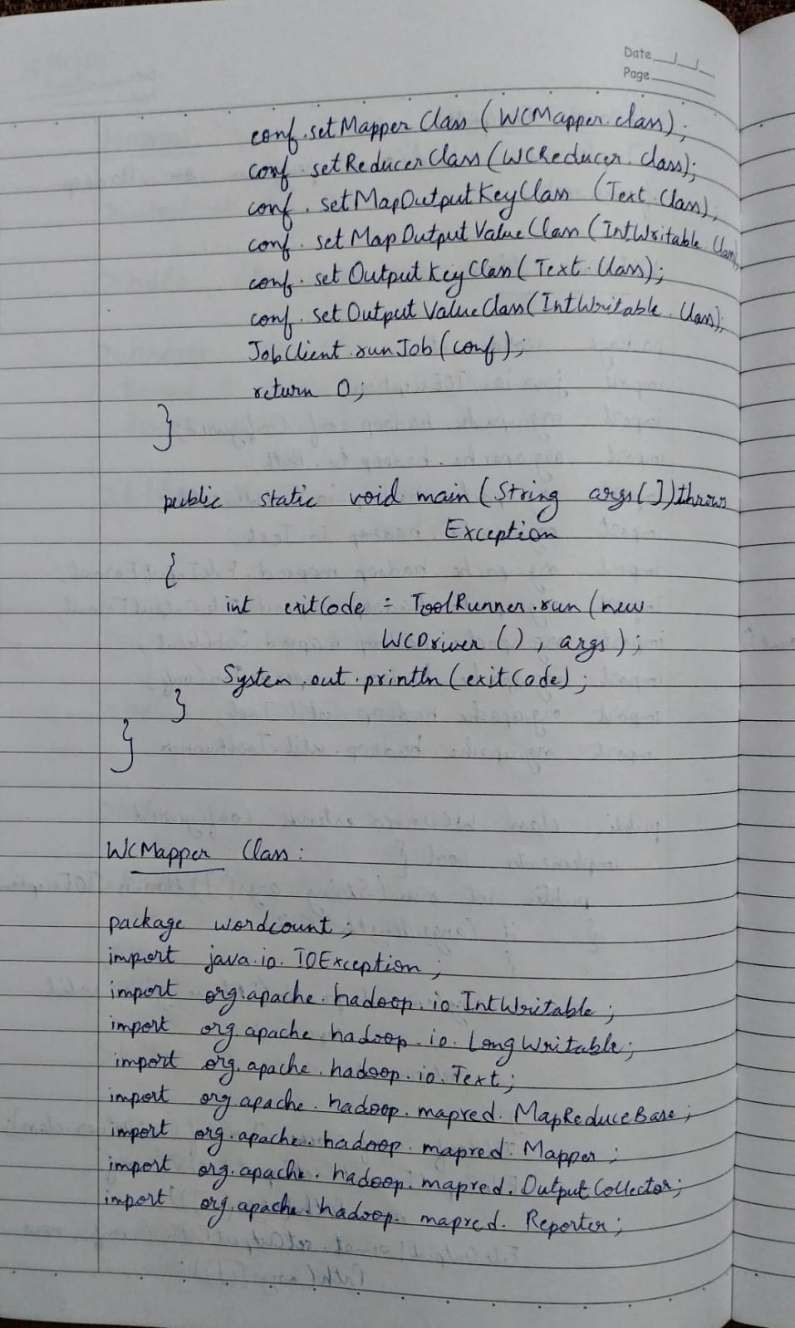 Date
Page
conf.setMapperClass (WCMapper.class);
conf.setReducerClass(WCReducer.class);
conf.setMapOutputKeyClass (Text.Class);
conf.setMapOutputValueClass(IntWritable.Class)
conf.setOutputKeyClass(Text.Class);
conf.setOutputValueClass(IntWritable.Class);
JobClient.runJob(conf);
return 0;
}
public static void main (String args[])throws
Exception
{
int exitCode = ToolRunner.run(new
WCDriver (), args);
System.out.println(exitCode);
}
}
WCMapper Class:
package wordcount;
import java.io.IOException;
import org.apache.hadoop.io.IntWritable;
import org.apache.hadoop.io.LongWritable;
import org.apache.hadoop.io.Text;
import org.apache.hadoop.mapred.MapReduceBase;
import org.apache.hadoop.mapred.Mapper;
import org.apache.hadoop.mapred.OutputCollector;
import org.apache.hadoop.mapred.Reporter;